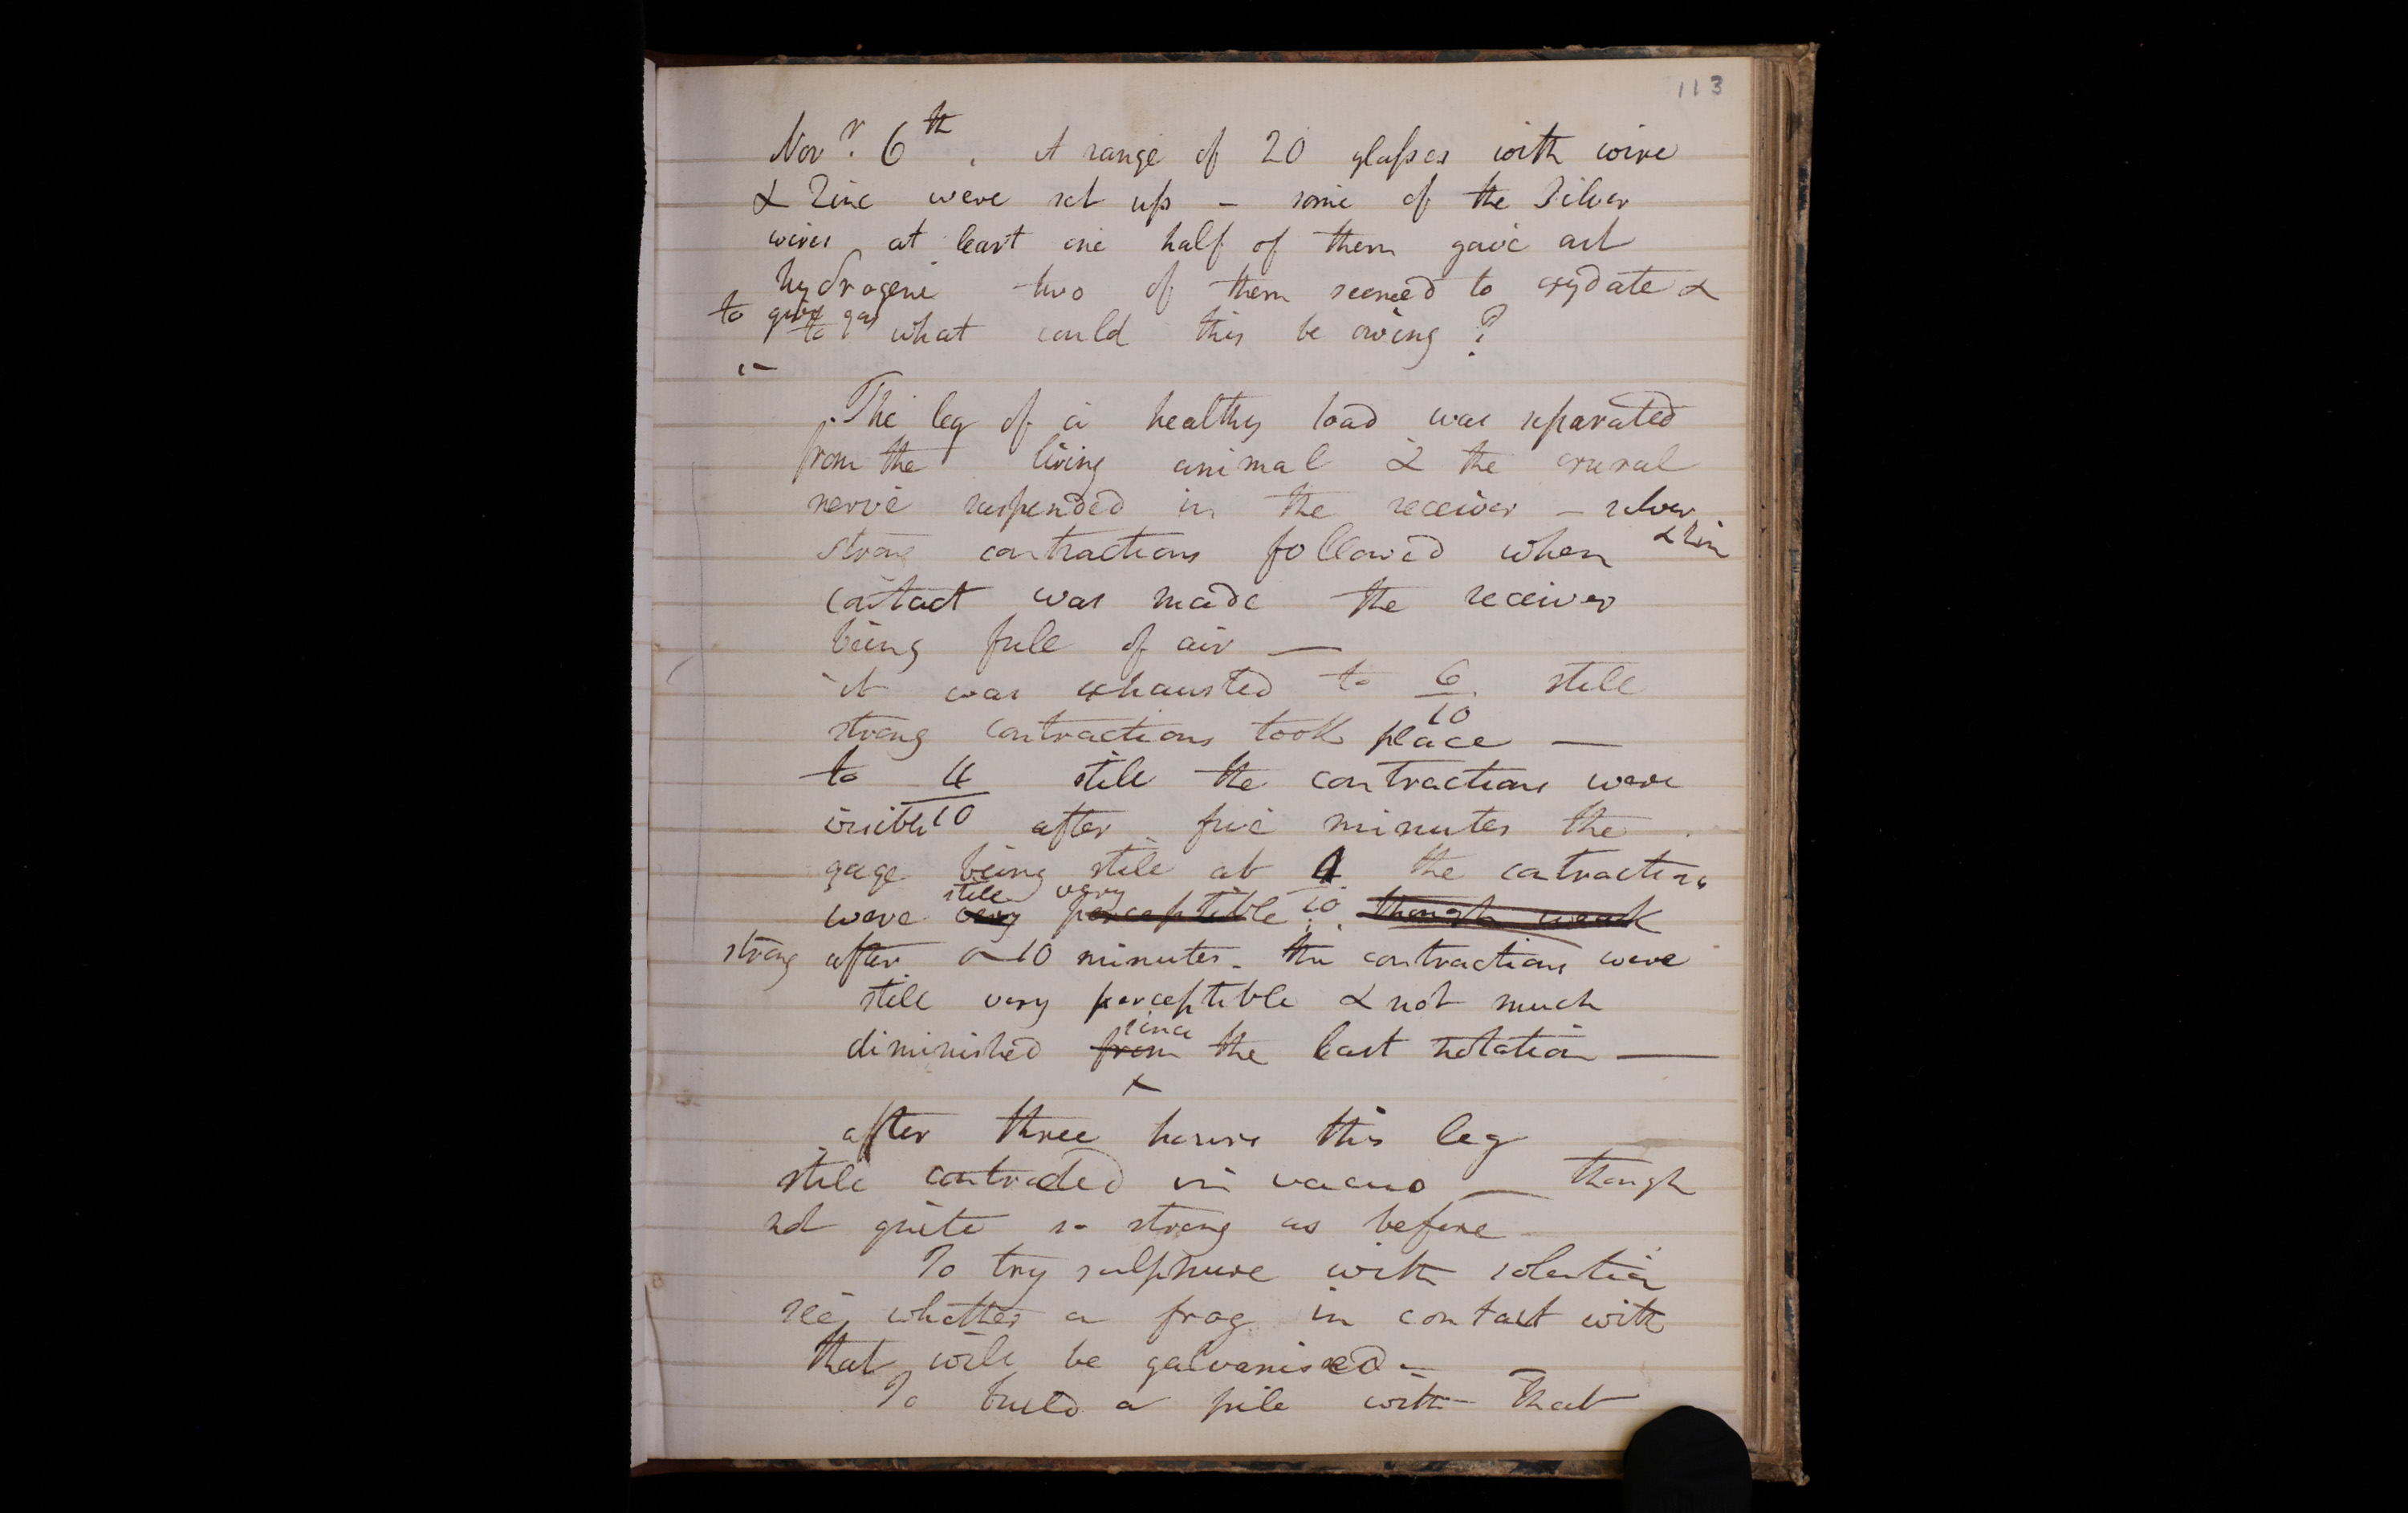 113
Novr. 6th. A range of 20 glasses with wire
& Zinc were set up – some of the Silver
wires at least one half of them gave out
hydrogene two of them seemed to oxydate &
to give gas
to what could this be owing?
The leg of a healthy toad was separated
from the living animal & the crural
nerve suspended in the receiver – silver
& Zin
strong contractions followed when
contact was made the receiver
being full of air —
it was exhausted to 6/10 still
strong contractions took place —
to 4/10 still the contractions were
visible after five minutes the
gage being still at 4/10 the contractions
still very
were very perceptible. though weak
strong after a 10 minutes. the contractions were
still very perceptible & not much
since
diminished from the last notation —
after three hours this leg
still contracted in vacuo — though
not quite so strong as before
To try sulphure with solution
see whether a frog in contact with
that will be galvanised –
To build a pile with that